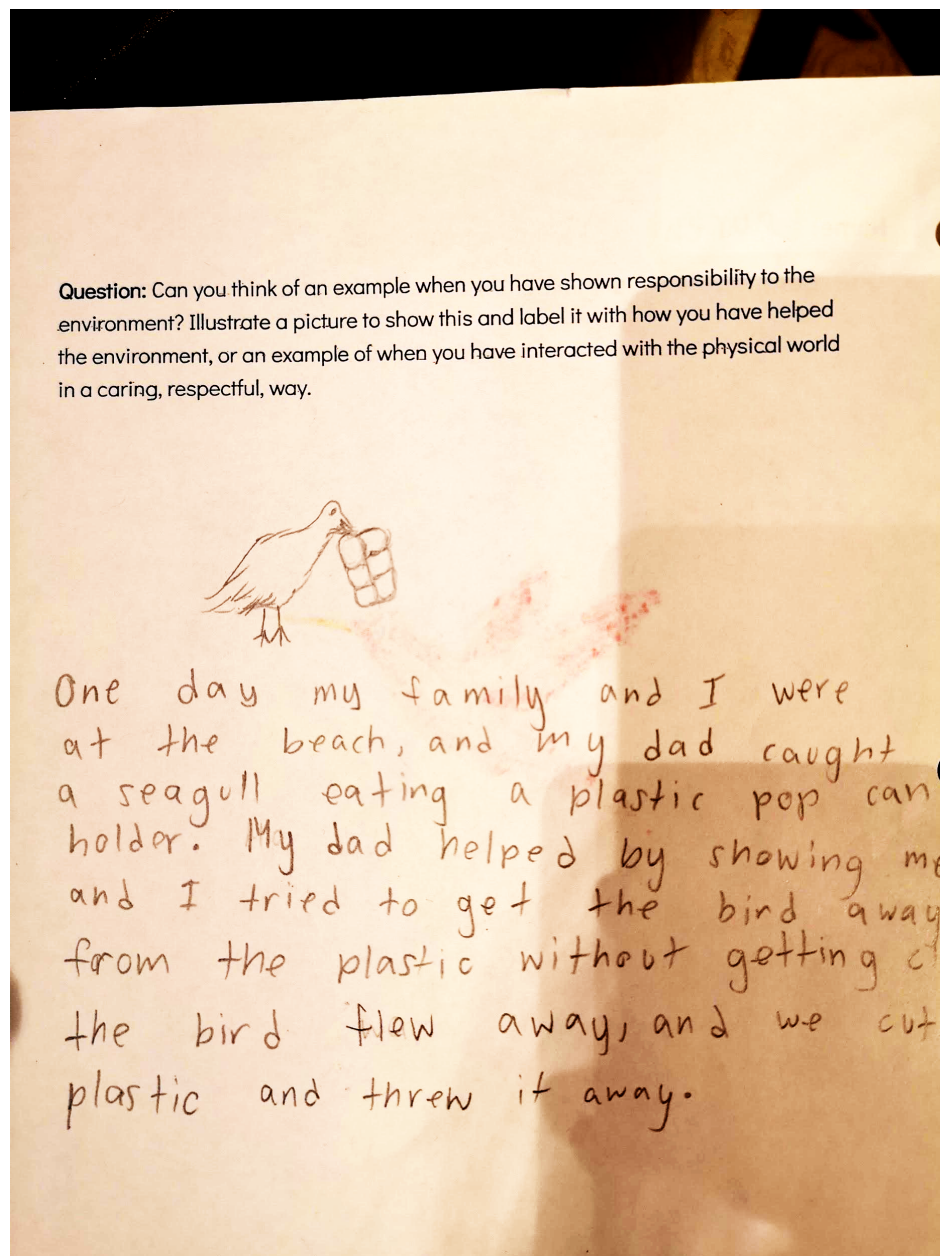 Question: Can you think of an example when you have shown responsibility to the
environment? Illustrate a picture to show this and label it with how you have helped
the environment, or an example of when you have interacted with the physical world
in a caring, respectful, way.
One day my family and I were
at the beach, and my dad caught
a seagull eating a plastic pop can
holder. My dad helped by showing me
and I tried to get the bird away
from the plastic without getting
the bird flew away, and we cut
plastic and threw it away.